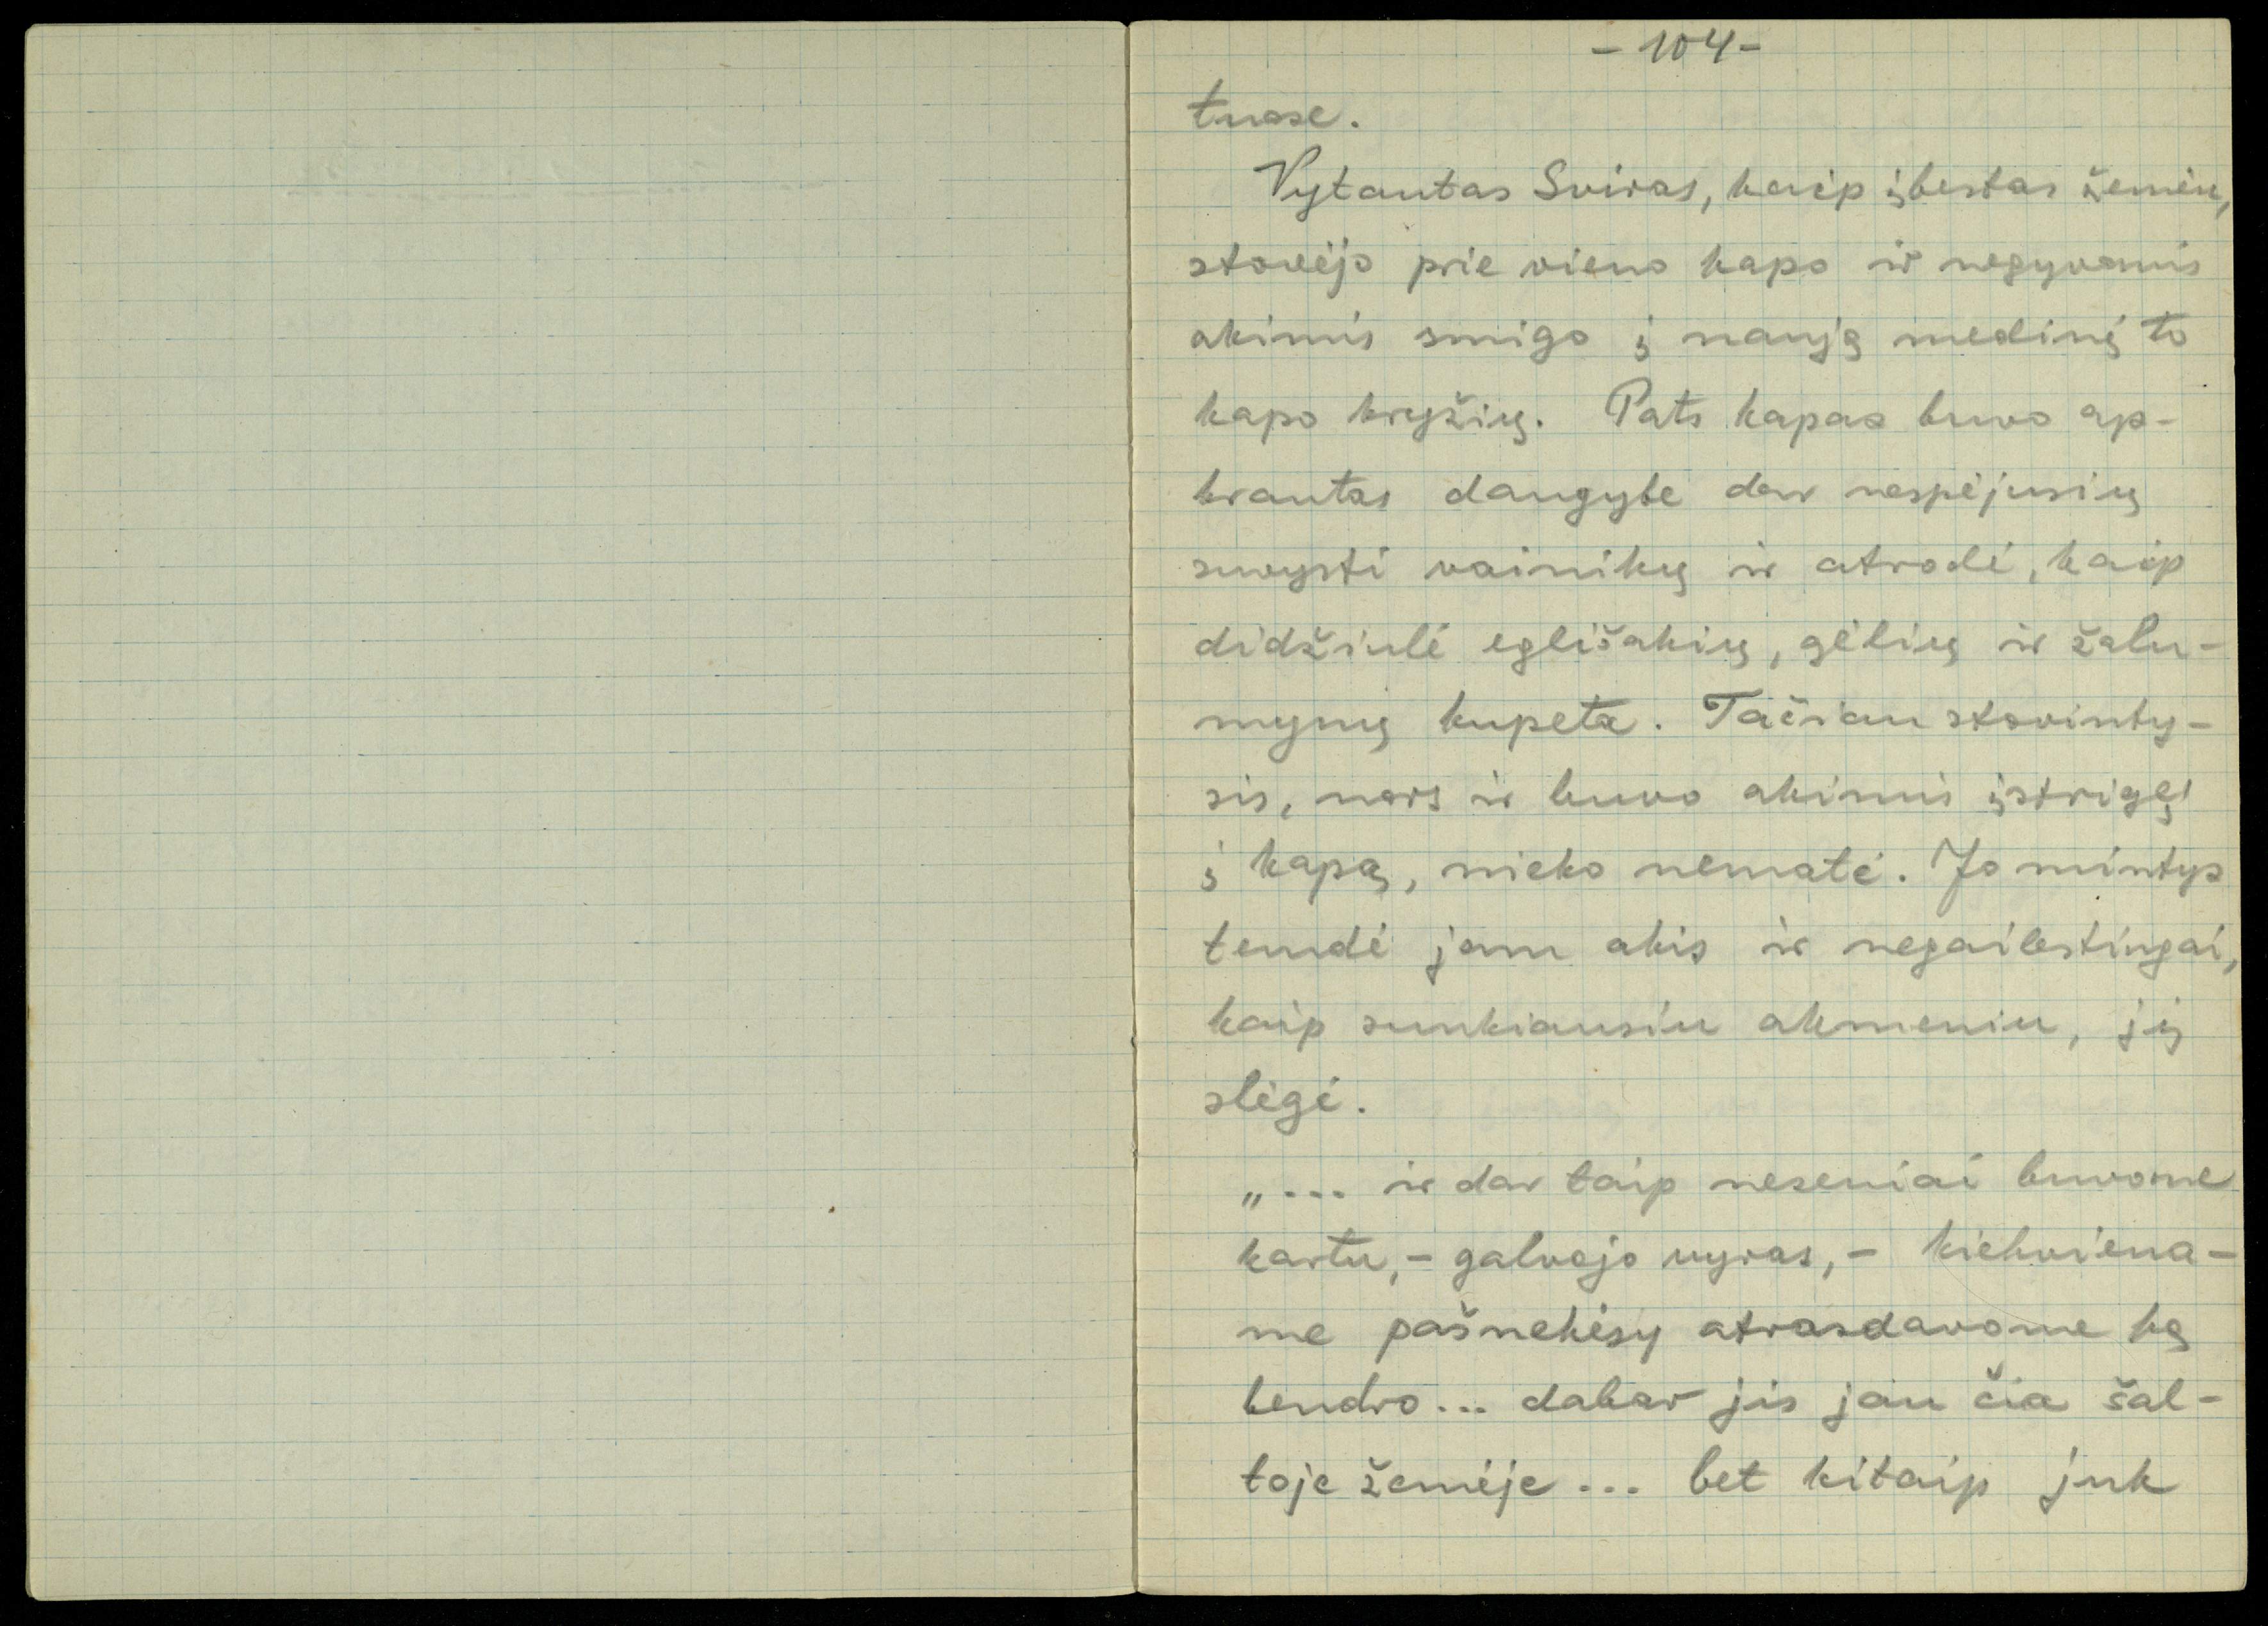 - 104 -
tuose.
Vytautas Sviras, kaip įbestas žemėn,
stovėjo prie vieno kapo ir negyvomis
akimis smigo į naują medinį to
kapo kryžių. Pats kapas buvo ap-
krautas daugybe dar nespėjusių
suvysti vainikų ir atrodė, kaip
didžiulė eglišakių, gėlių ir žalu-
mynų kupeta. Tačiau stovinty-
sis, nors ir buvo akimis įstrigęs
į kapą, nieko nematė. Jo mintys
temdė jam akis ir negailestingai,
kaip sunkiausiu akmeniu, jį
slėgė.
„... ir dar taip neseniai buvome
kartu, - galvojo vyras, - kiekviena-
me pašnekėsy atrasdavome ką
bendro... dabar jis jau čia šal-
toje žemėje... bet kitaip juk